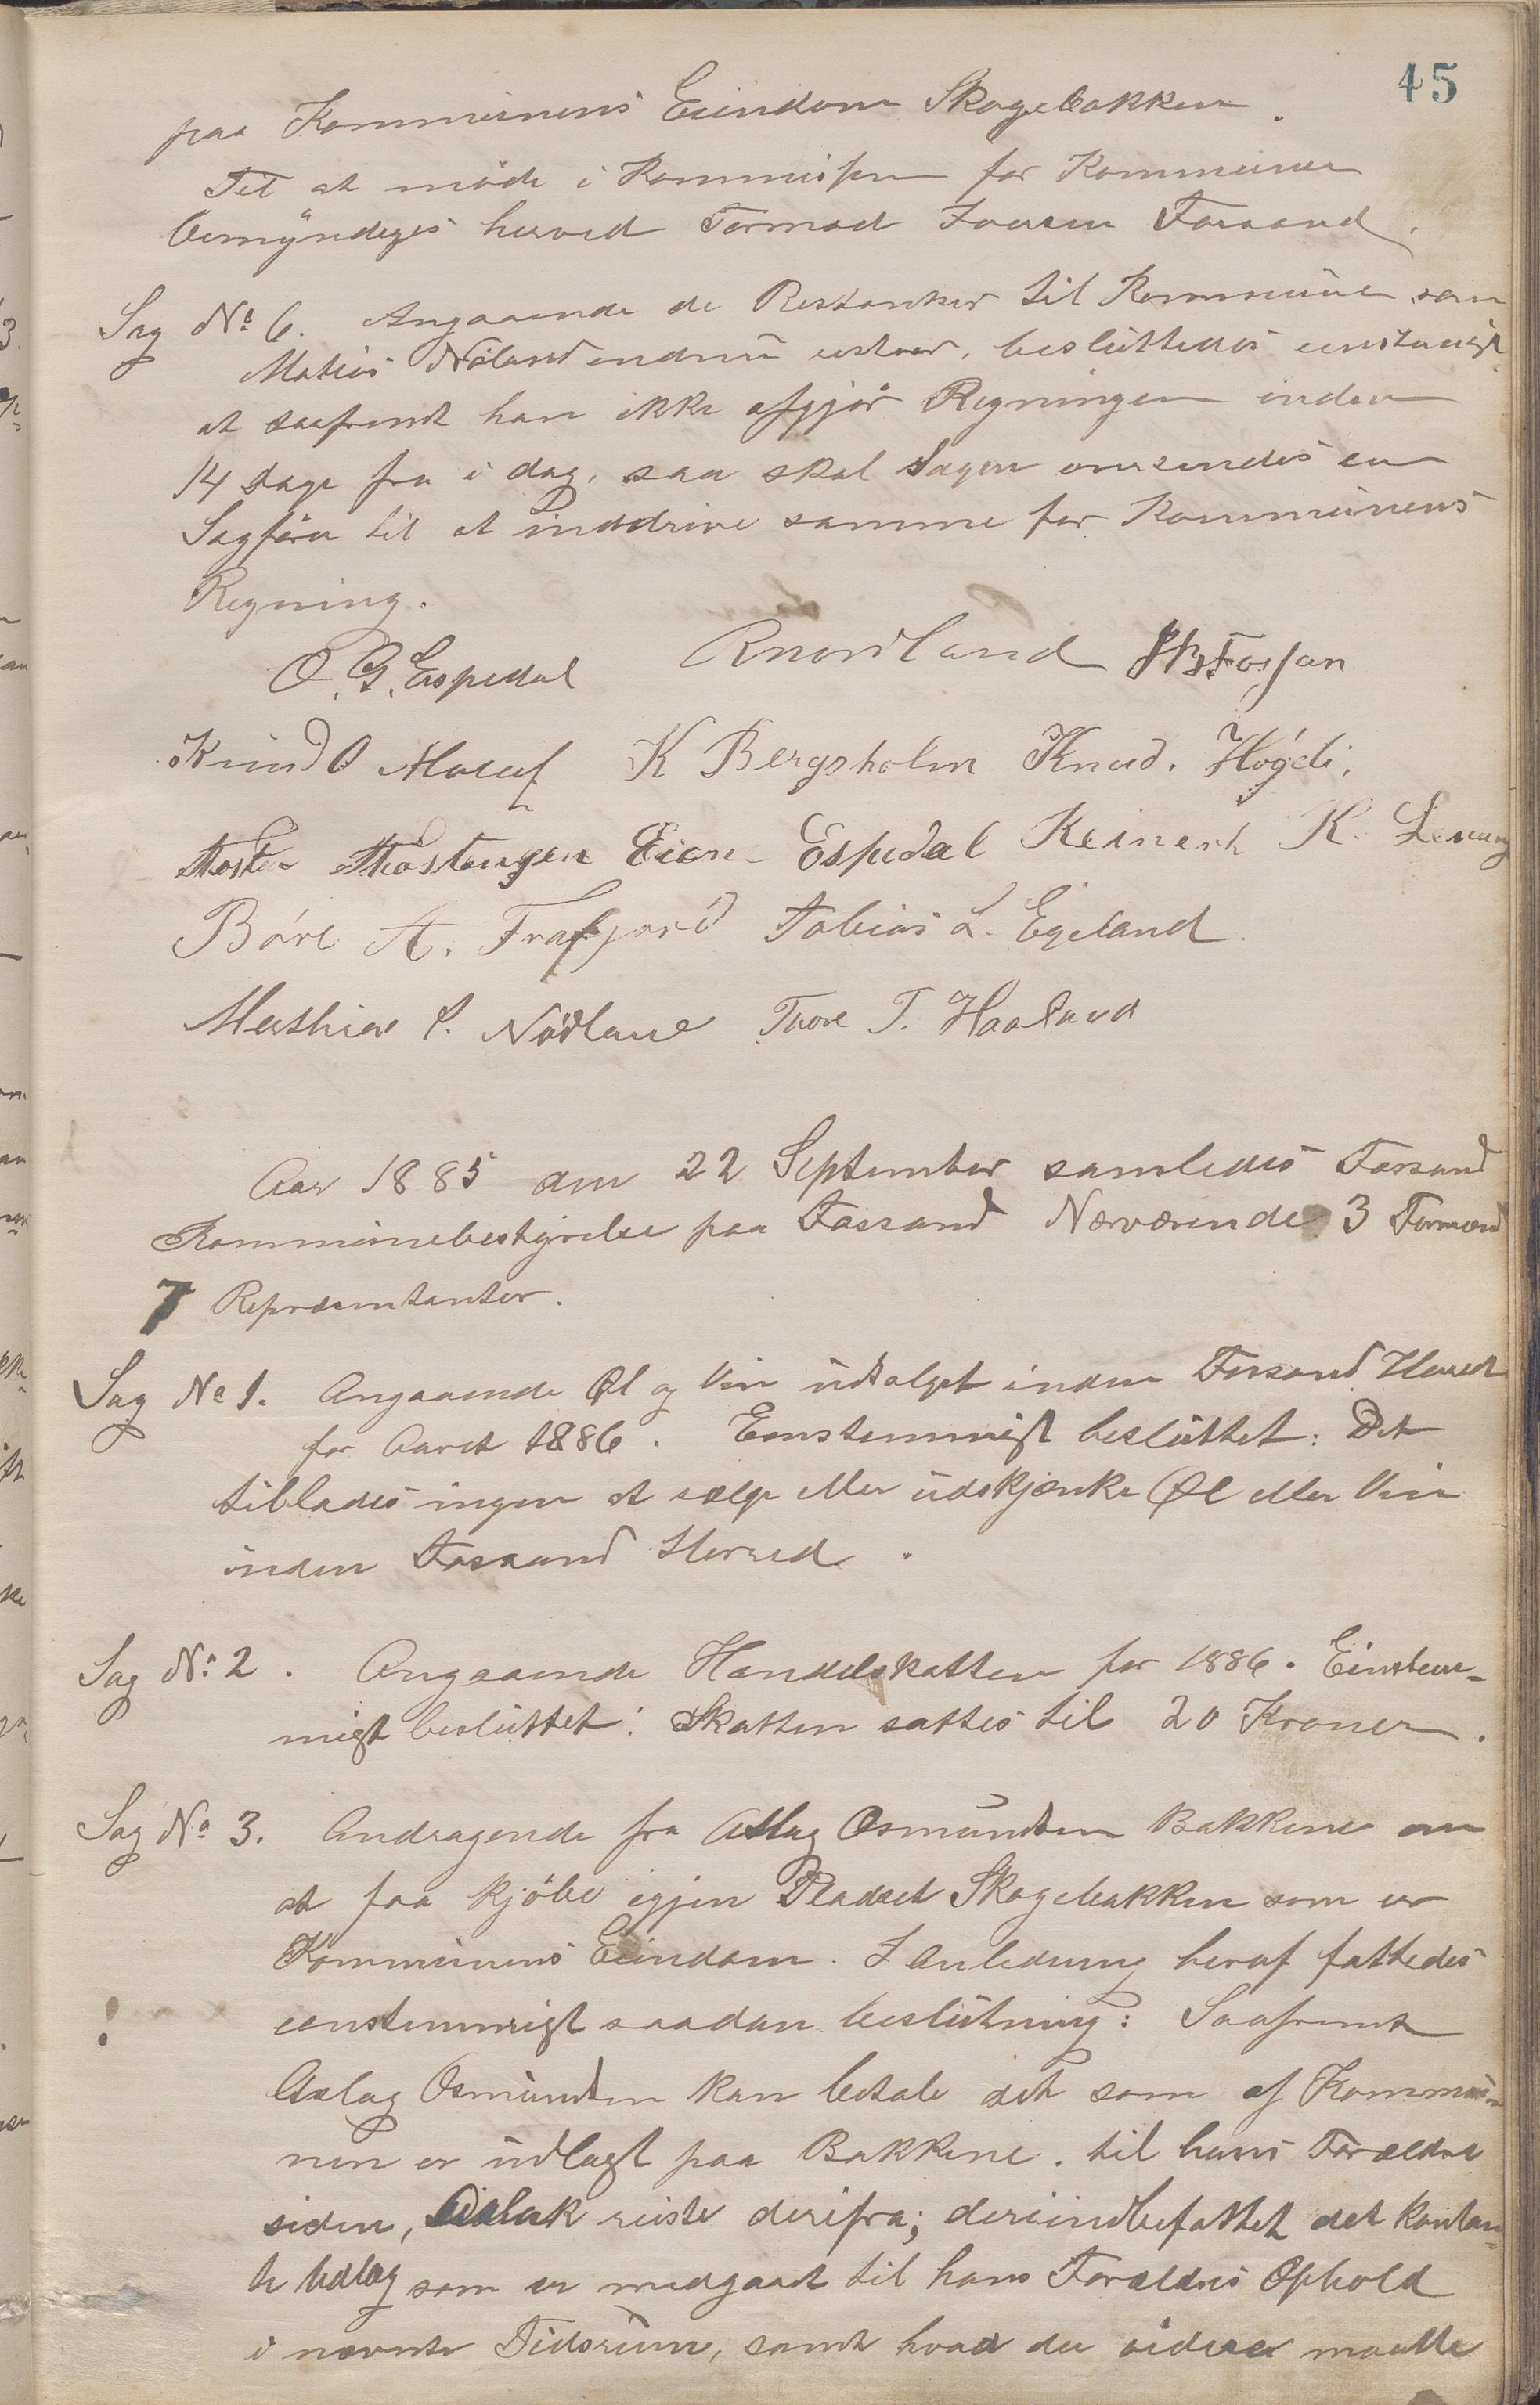 45
paa Kommunens Eiendom Skagebakken.
Til at møde i Kommissen for Kommunen
bemyndiges herved Tormod Iversen Forsand.
Sag No 6. Angaaende de Restanser til Kommunen som
Matias Nöland endnu udstaar, besluttedes eenstemigt
at saafremt han ikke afgjør Regningen inden
14 Dage fra i dag, saa skal Sagen oversendes en
Sagfører til at inddrive samme for Kommunens
Regning.
O. G. Espedal Fossan
Knud O K Bergsholm Knud. Høgeli,
Espedal Reinert K.
Böre A. Frafjord Tobias L. Egeland
Mathias S. Nødland Tore T. Haaland
Aar 1885 den 22 September samledes Forsand
Kommunebestyrelse paa Fossand Nærværende 3 Formænd
7 Repræsentanter.
Sag No 1. Angaaende Øl og Vin udsalget inden Forsand Herred
for Aaret 1886. Eenstemmigt besluttet: Det
tillades ingen at sælge eller udskjænke Øl eller Vin
inden Fossand Herred.
Sag No 2. Angaaende Handelskatten for 1886. Einstem-
migt besluttet: Skatten sattes til 20 Kroner.
Sag No 3. Andragende fra Aslag Osmundsen Bakkene om
at faa kjöbe igjen Pladset Skagebakken som er
Kommunens Eiendom. I Anledning heraf fattedes
! eenstemmigt saadan beslutning: Saafremt
Aslag Osmundsen kan betale det som af Kommu-
nen er udlagt paa Bakkene. til hans Forældre
siden, Aslak reiste derifra; deriindbefattet det kontan-
te Udlæg som er medgaaet til hans Forældres Ophold
i nævnte Tidsrum, samt hvad der videre maatte